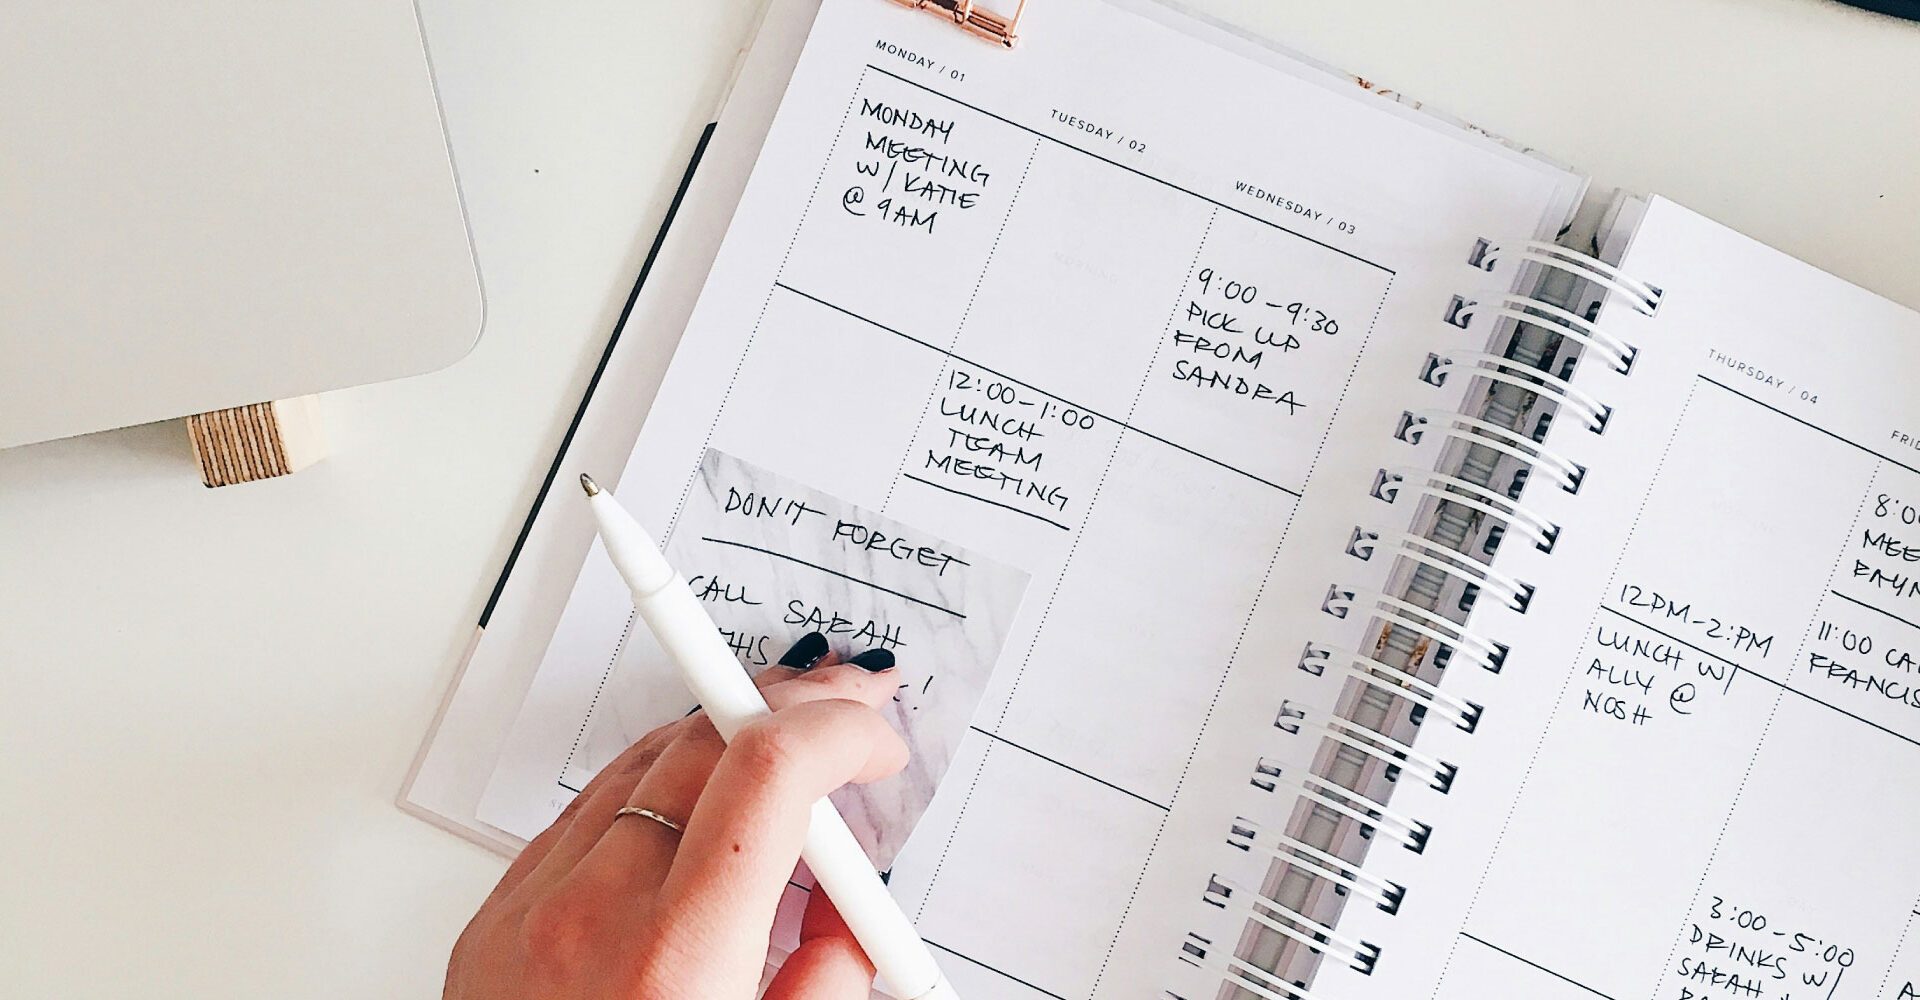 MONDAY / 01
MONDAY
MEETING
W/ KATIE
@ 9AM
TUESDAY / 02
12:00-1:00
LUNCH
TEAM
MEETING
WEDNESDAY / 03
9:00-9:30
PICK UP
FROM
SANDRA
DON'T FORGET
CALL SARAH
THIS
THURSDAY / 04
12PM-2:PM
LUNCH W/
ALLY @
NOSH
3:00-5:00
DRINKS W/
SARAH
FRID
8:0
MEE
11:00 CA
FRANCIS